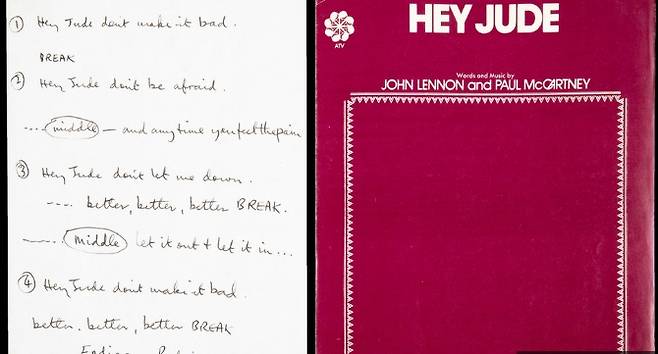 ① Hey Jude dont make it bad.
BREAK
② Hey Jude don't be afraid.
.... middle — and anytime you feel the pain
③ Hey Jude don't let me down.
---- better, better, better BREAK.
middle let it out + let it in ...
④ Hey Jude dont make it bad.
better. better, better BREAK
HEY JUDE
ATV
Words and Music by
JOHN LENNON and PAUL McCARTNEY